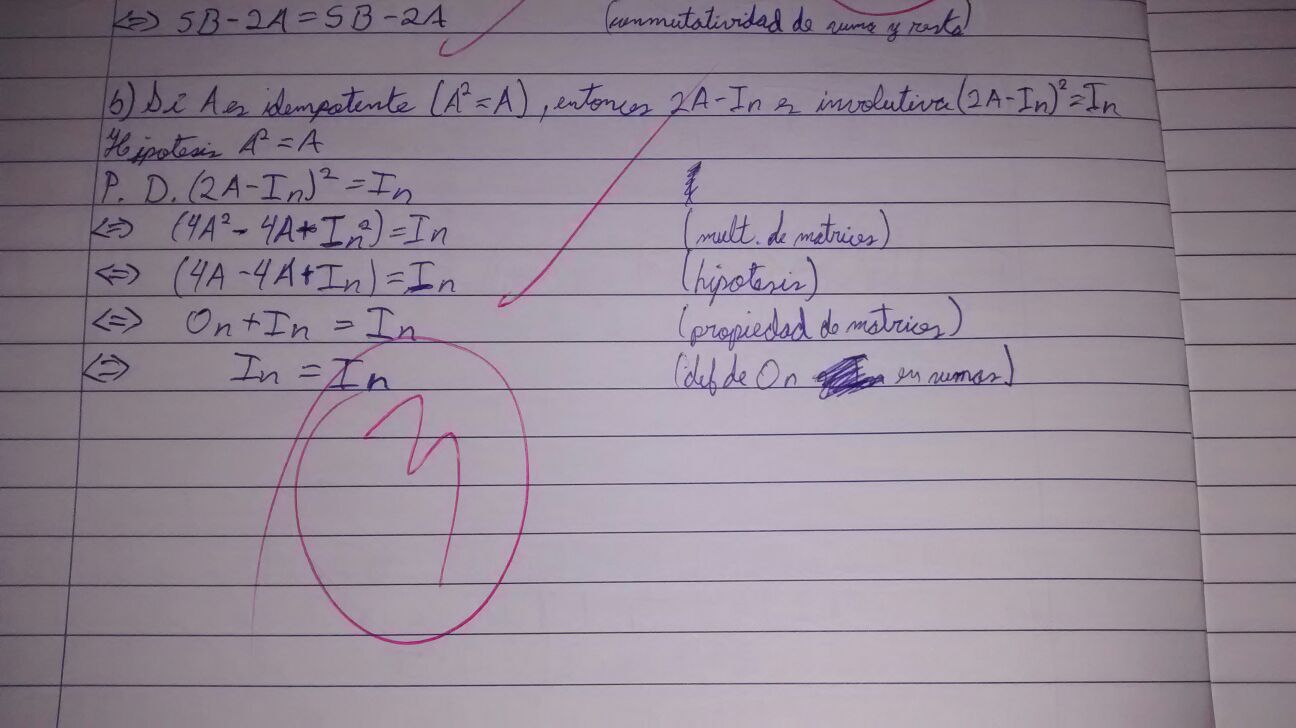 <=> 5B-2A=5B-2A (conmutatividad de suma y resta)
b) Si A es idempotente (A²=A), entonces 2A-In es involutiva (2A-In)²=In
Hipotesis A²=A
P. D. (2A-In)²=In
<=> (4A²-4A+In²)=In (mult. de matrices)
<=> (4A-4A+In)=In (hipotesis)
<=> On+In=In (propiedad de matrices)
<=> In=In (def de On en sumas)